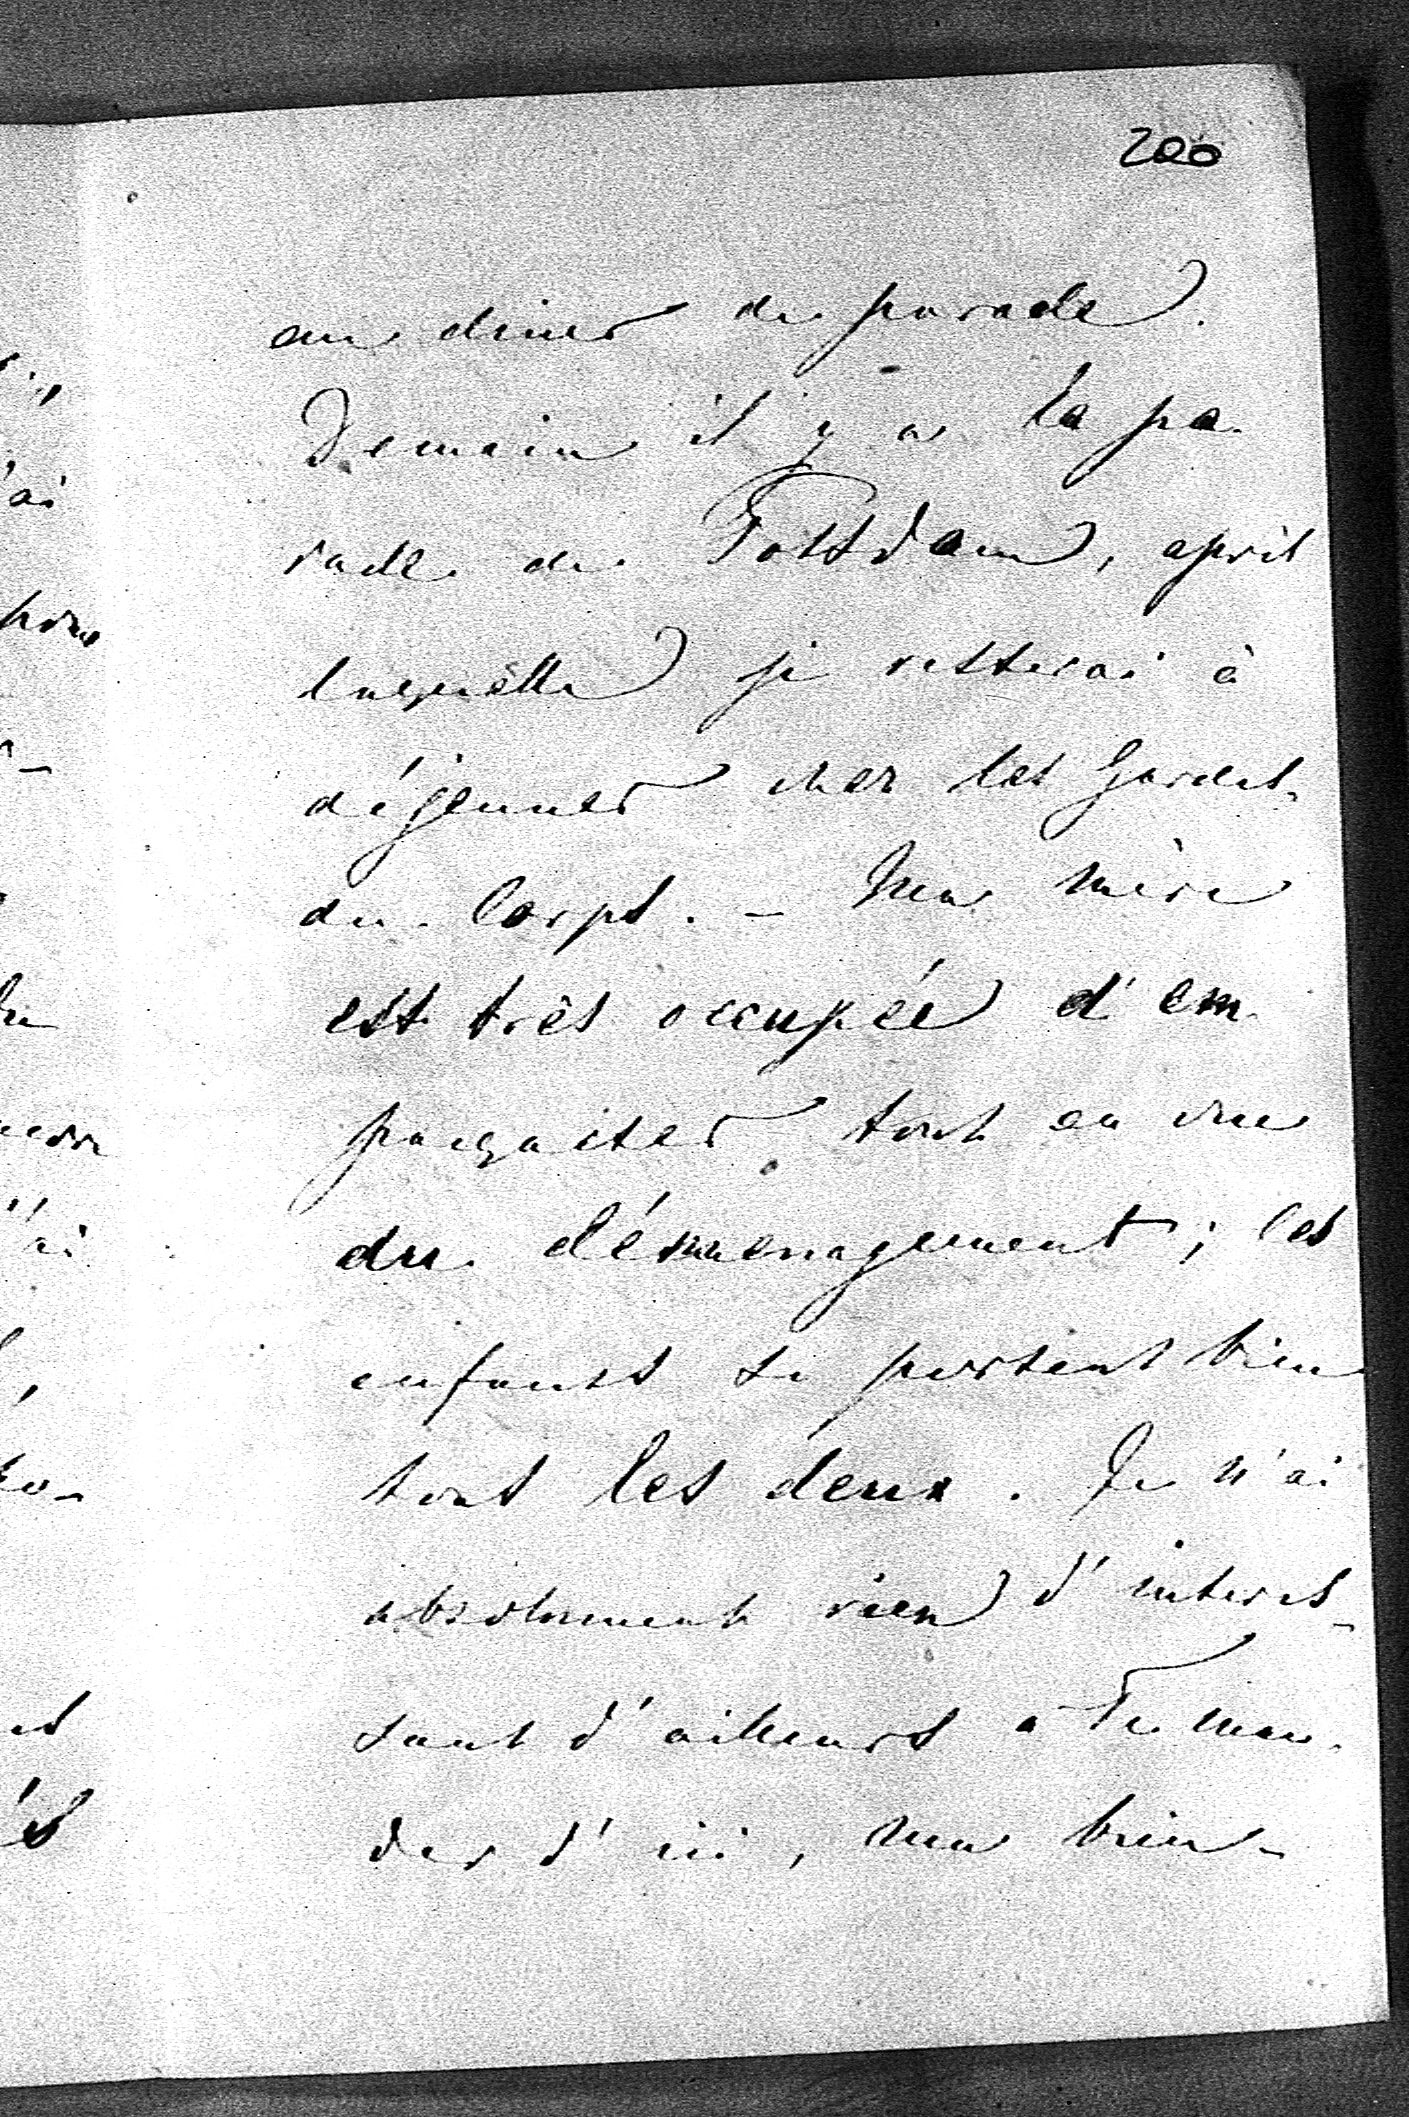 200
au diner de parade.
Demain il y a la pa-
rade de Pottsdam, après
laquelle je resterai à
déjeuner chez les Gardes-
du-Corps. – Ma mère
est très occupée d'em-
paqueter tout en vue
du déménagement; les
enfants se portent bien
tous les deux. Je n'ai
absolument rien d'interes-
sant d'ailleurs à Te man-
der d'ici, ma bien-